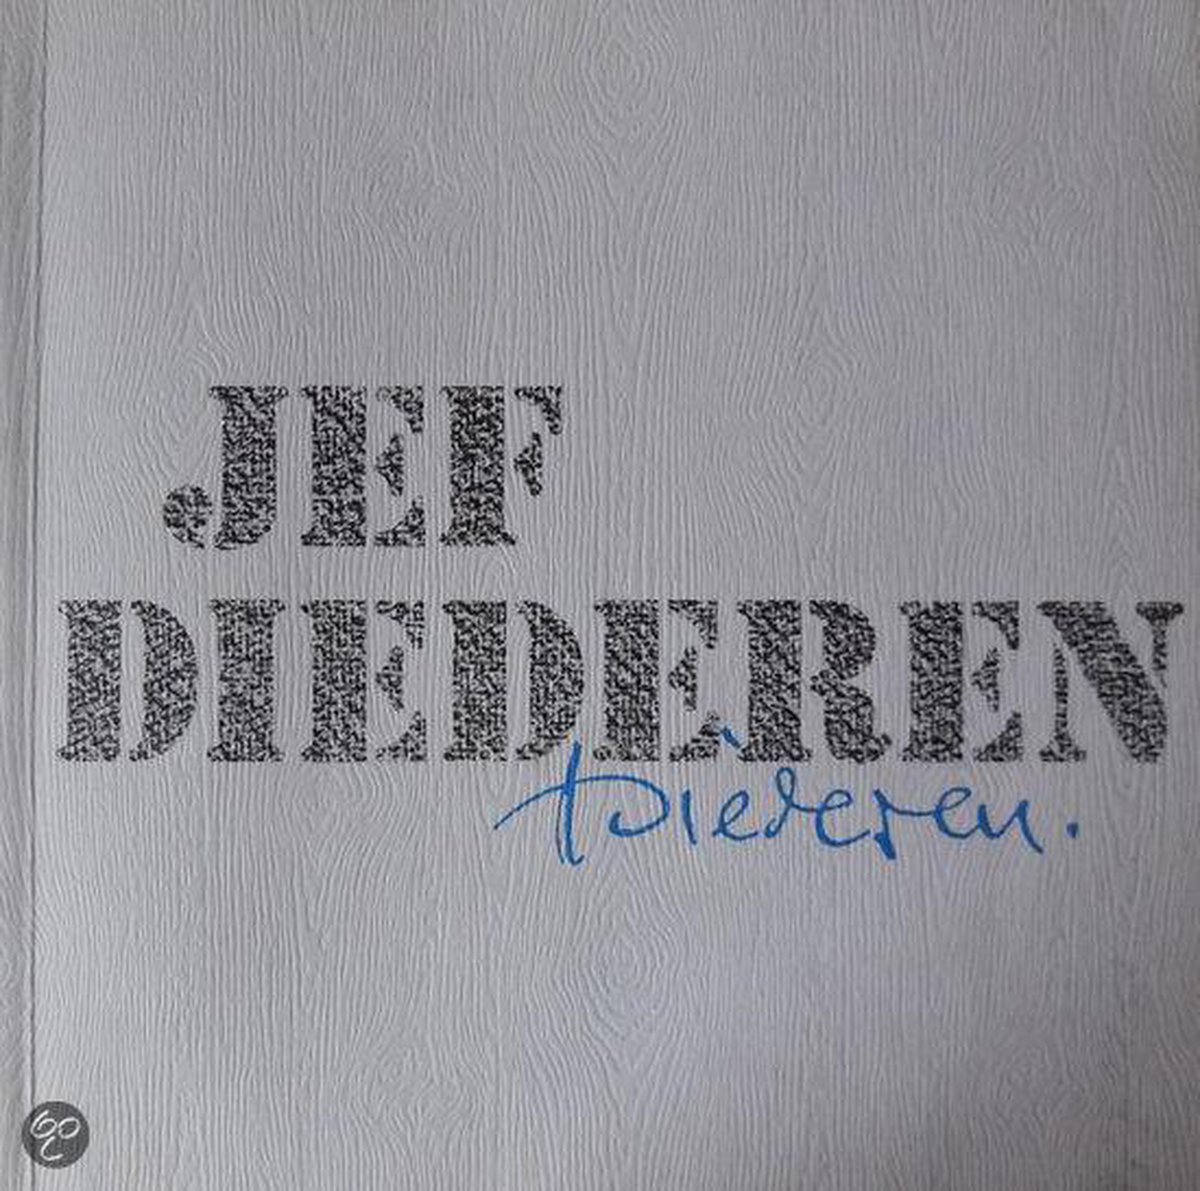 JEF
DIEDEREN
Diederen.